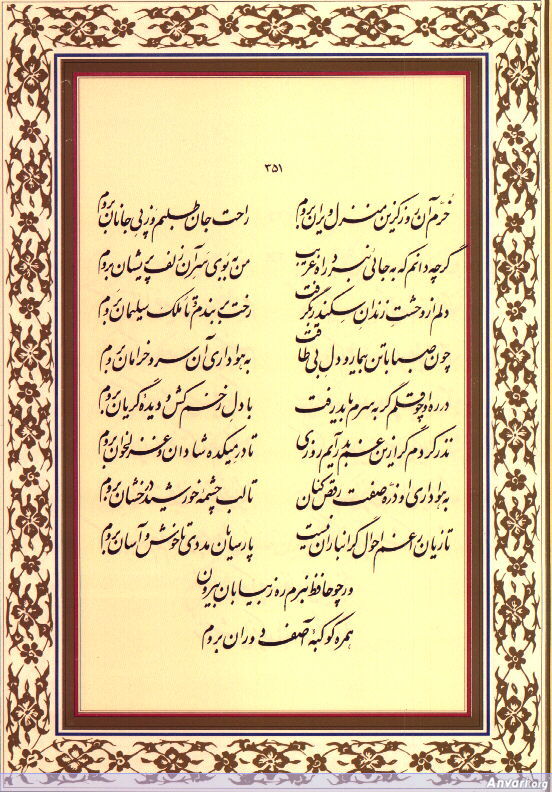 ۳۵۱
خرم آن روز کزین منزل ویران بروم راحت جان طلبم وز پی جانان بروم
گرچه دانم که به جائی نبرد راه غریب من به بوی سر آن زلف پریشان بروم
دلم از وحشت زندان سکندر بگرفت رخت بربندم و تا ملک سلیمان بروم
چون صبا با تن بیمار و دل بی طاقت به هواداری آن سرو خرامان بروم
در ره او چو قلم گر به سرم باید رفت با دل زخم کش و دیده گریان بروم
نذر کردم گر ازین غم بدر آیم روزی تا در میکده شادان و غزلخوان بروم
به هواداری او ذره صفت رقص کنان تا لب چشمه خورشید درخشان بروم
تازیان را غم احوال گرانباران نیست پارسایان مددی تا خوش و آسان بروم
ور چو حافظ نبرم ره ز بیابان بیرون
همره کوکبه آصف دوران بروم
Anvari.org